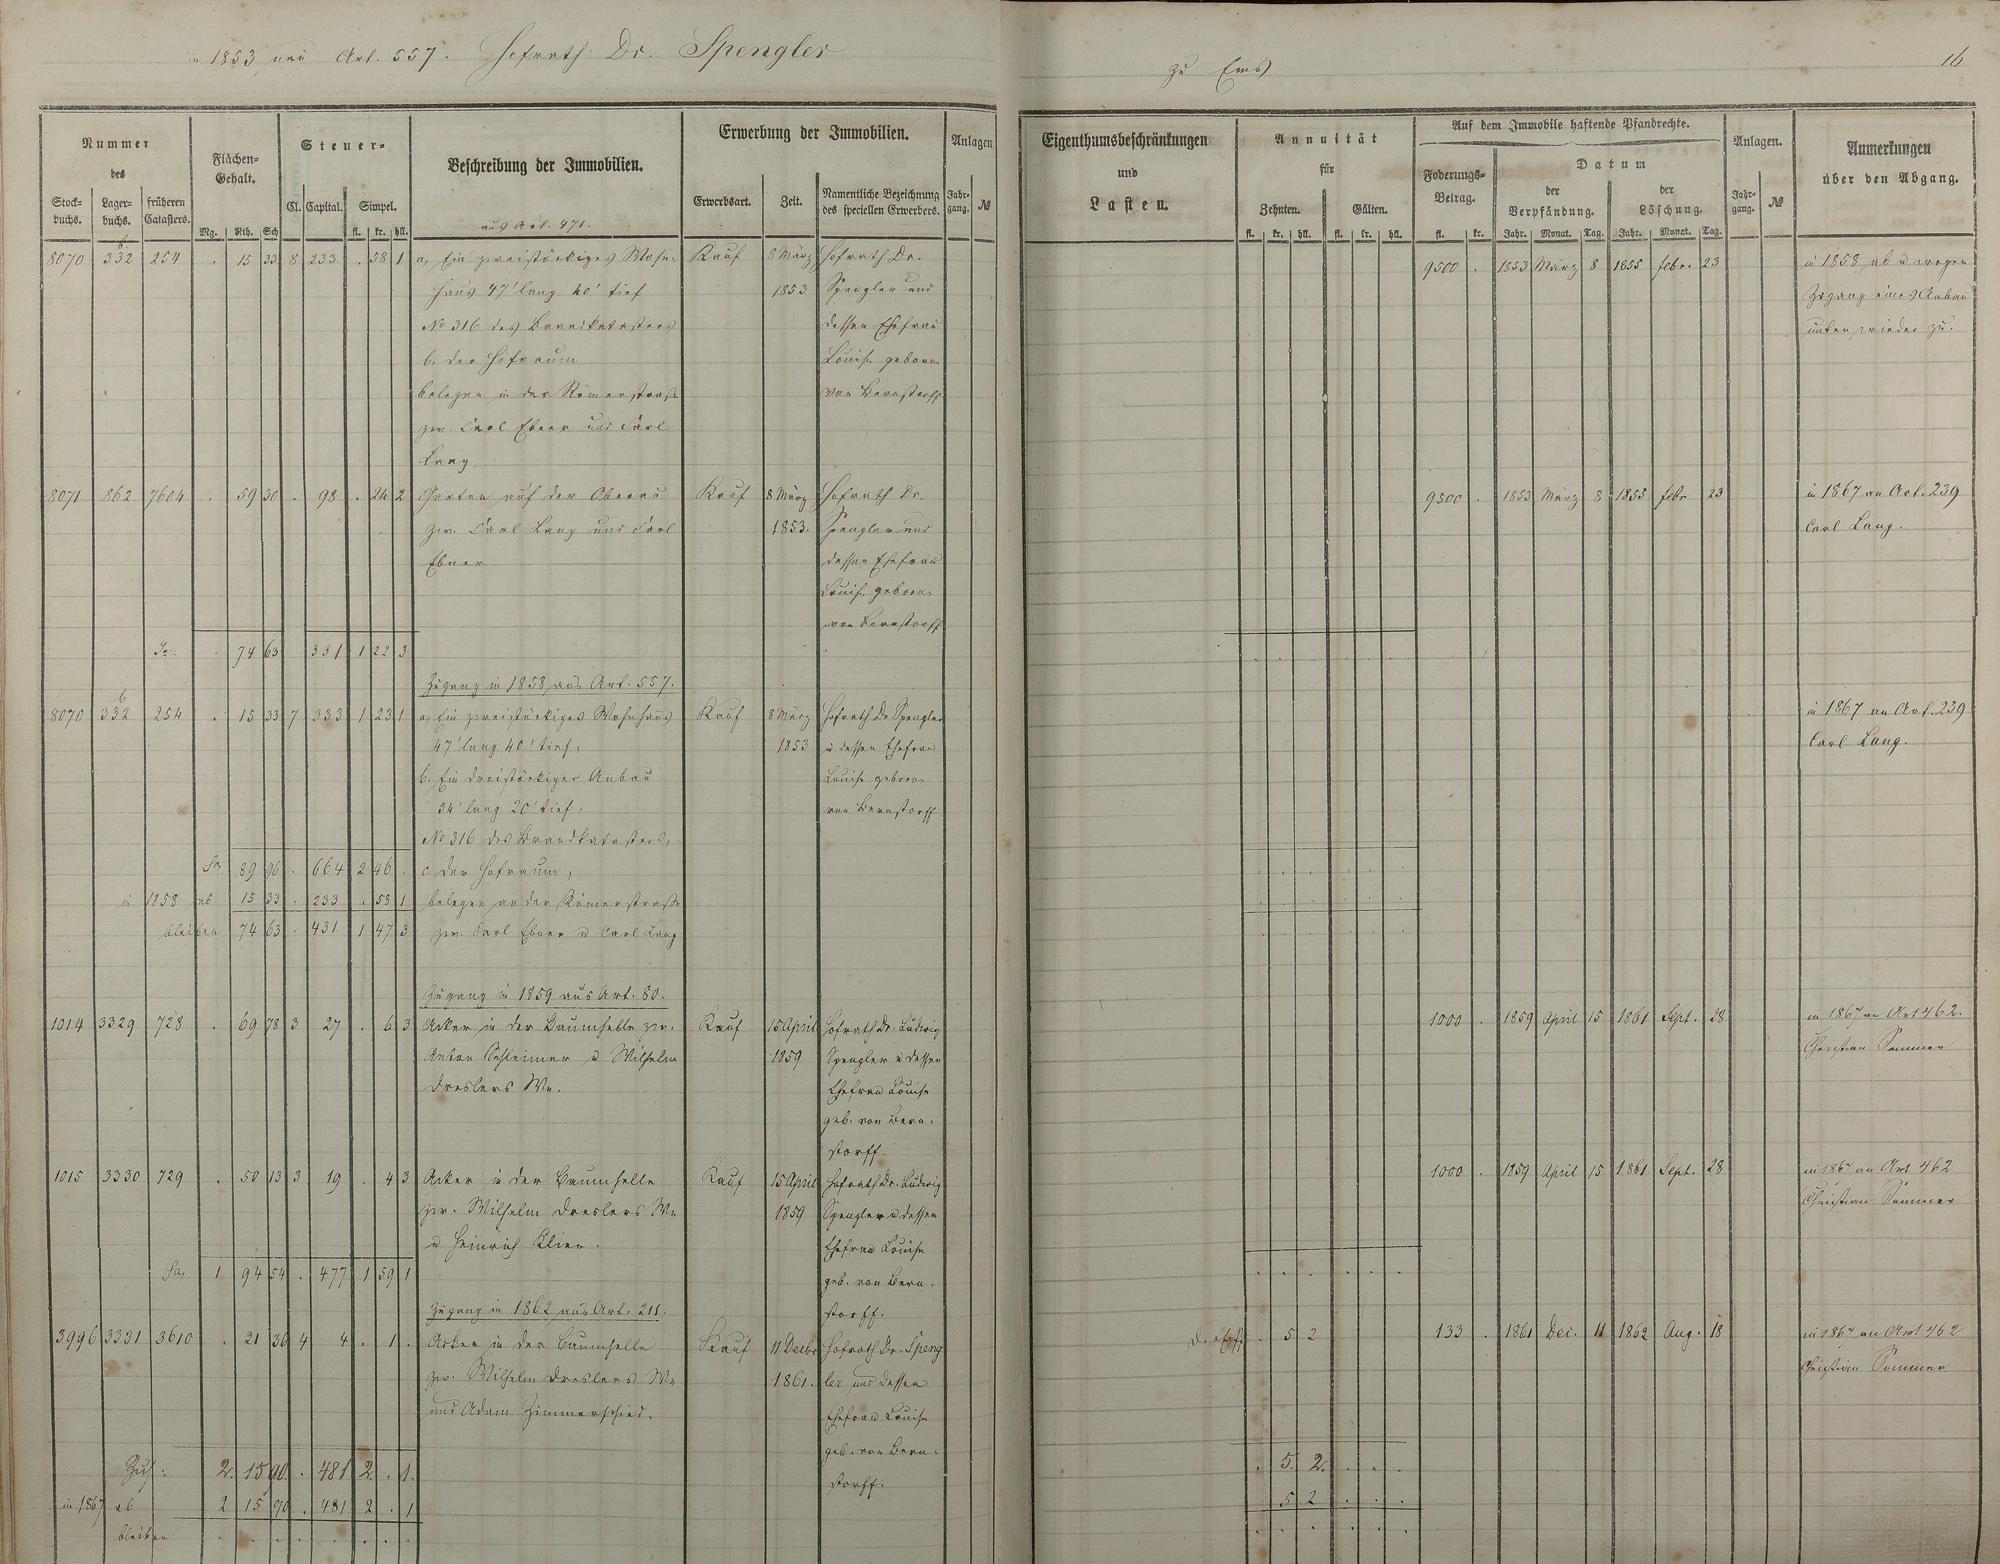 in 1853 neu Art. 557. Hofrath Dr. Spengler
zu Ems
16
Nummer
des
Stock-
buchs.
Lager-
buchs.
früheren
Catasters.
Flächen-
Gehalt.
Mg. Rth. Sch
Steuer-
Cl. Capital. Simpel.
fl. kr. hll.
Beschreibung der Immobilien.
Erwerbung der Immobilien.
Erwerbsart. Zeit.
Namentliche Bezeichnung
des speciellen Erwerbers.
Anlagen
Jahr-
gang. №
Eigenthumsbeschränkungen
und
Lasten.
Annuität
für
Zehnten. Gülten.
fl. kr. hll. fl. kr. hll.
Auf dem Immobile haftende Pfandrechte.
Foderungs-
Betrag.
fl. kr.
Datum
der
Verpfändung.
der
Löschung.
Jahr. Monat. Tag. Jahr. Monat. Tag.
Anlagen.
Jahr-
gang. №
Anmerkungen
über den Abgang.
aus Art. 471.
8070 332 b 254 . 15 33 8 233 . 58 1
a, Ein zweistöckiges Wohn-
haus 47' lang 40' tief
No 316 des Brandkatasters
b. der Hofraum
belegen in der Römerstraße
zw. Carl Ebner und Carl
Lang
Kauf 8 März
1853
Hofrath Dr.
Spengler und
dessen Ehefrau
Louise geborene
von Bernstorff
9500 . 1853 März 8 1855 Febr. 23
in 1858 ab u wegen
Zugang eines Anbau
unten wieder zu.
8071 862 7604 . 59 30 . 98 . 24 2
Garten auf der Oberau
zw. Carl Lang und Carl
Ebner
Kauf 8 März
1853.
Hofrath Dr.
Spengler und
dessen Ehefrau
Louise geborene
von Bernstorff
9500 . 1853 März 8 1855 Febr 23
in 1867 an Art. 239
Carl Lang.
Sa . 74 63 331 1 22 3
Zugang in 1858 aus Art. 557.
8070 332 b 254 . 15 33 7 333 1 23 1
a, Ein zweistöckiges Wohnhaus
47' lang 40' tief,
b. Ein dreistöckiger Anbau
34' lang 20' tief,
No 316 des Brandkatasters,
c. der Hofraum,
belegen an der Römerstraße
zw. Carl Ebner u Carl Lang
Kauf 8 März
1853
Hofrath Dr Spengler
u dessen Ehefrau
Louise geborene
von Bernstorff
in 1867 an Art. 239
Carl Lang.
Sa, 89 96 . 664 2 46 .
in 1858 ab 15 33 . 233 . 58 1
bleiben 74 63 . 431 1 47 3
Zugang in 1859 aus Art. 80.
1014 3329 728 . 69 78 3 27 . 6 3
Acker in der Baumhelle zw.
Anton Schleimer u Wilhelm
Dreslers We.
Kauf 15 April
1859
Hofrath Dr. Ludwig
Spengler u dessen
Ehefrau Louise
geb. von Bern-
storff.
1000 . 1859 April 15 1861 Sept. 28
in 1867 an Art 462.
Christian Sommer
1015 3330 729 . 50 13 3 19 . 4 3
Acker in der Baumhelle
zw. Wilhelm Dreslers We
u Heinrich Klien.
Kauf 15 April
1859
Hofrath Dr. Ludwig
Spengler u dessen
Ehefrau Louise
geb. von Bern-
storff.
1000 . 1859 April 15 1861 Sept. 28
in 1867 an Art 462
Christian Sommer
Sa, 1 94 54 . 477 1 59 1
Zugang in 1862 aus Art. 211.
3996 3331 3610 . 21 36 4 4 . 1 .
Acker in der Baumhelle
zw. Wilhelm Dreslers We
und Adam Zimmerschied.
Kauf 11 Decbr
1861.
Hofrath Dr. Speng
ler und dessen
Ehefrau Louise
geb. von Bern-
storff.
. 5 2
133 . 1861 Dec. 11 1862 Aug. 18
in 1867 an Art 462
Christian Sommer
Zus: 2. 15 90. . 481 2. . 1.
. 5. 2. . . .
in 1867 ab 2 15 90 . 481 2 . 1
5 2 . . .
bleiben . . . . . . . .